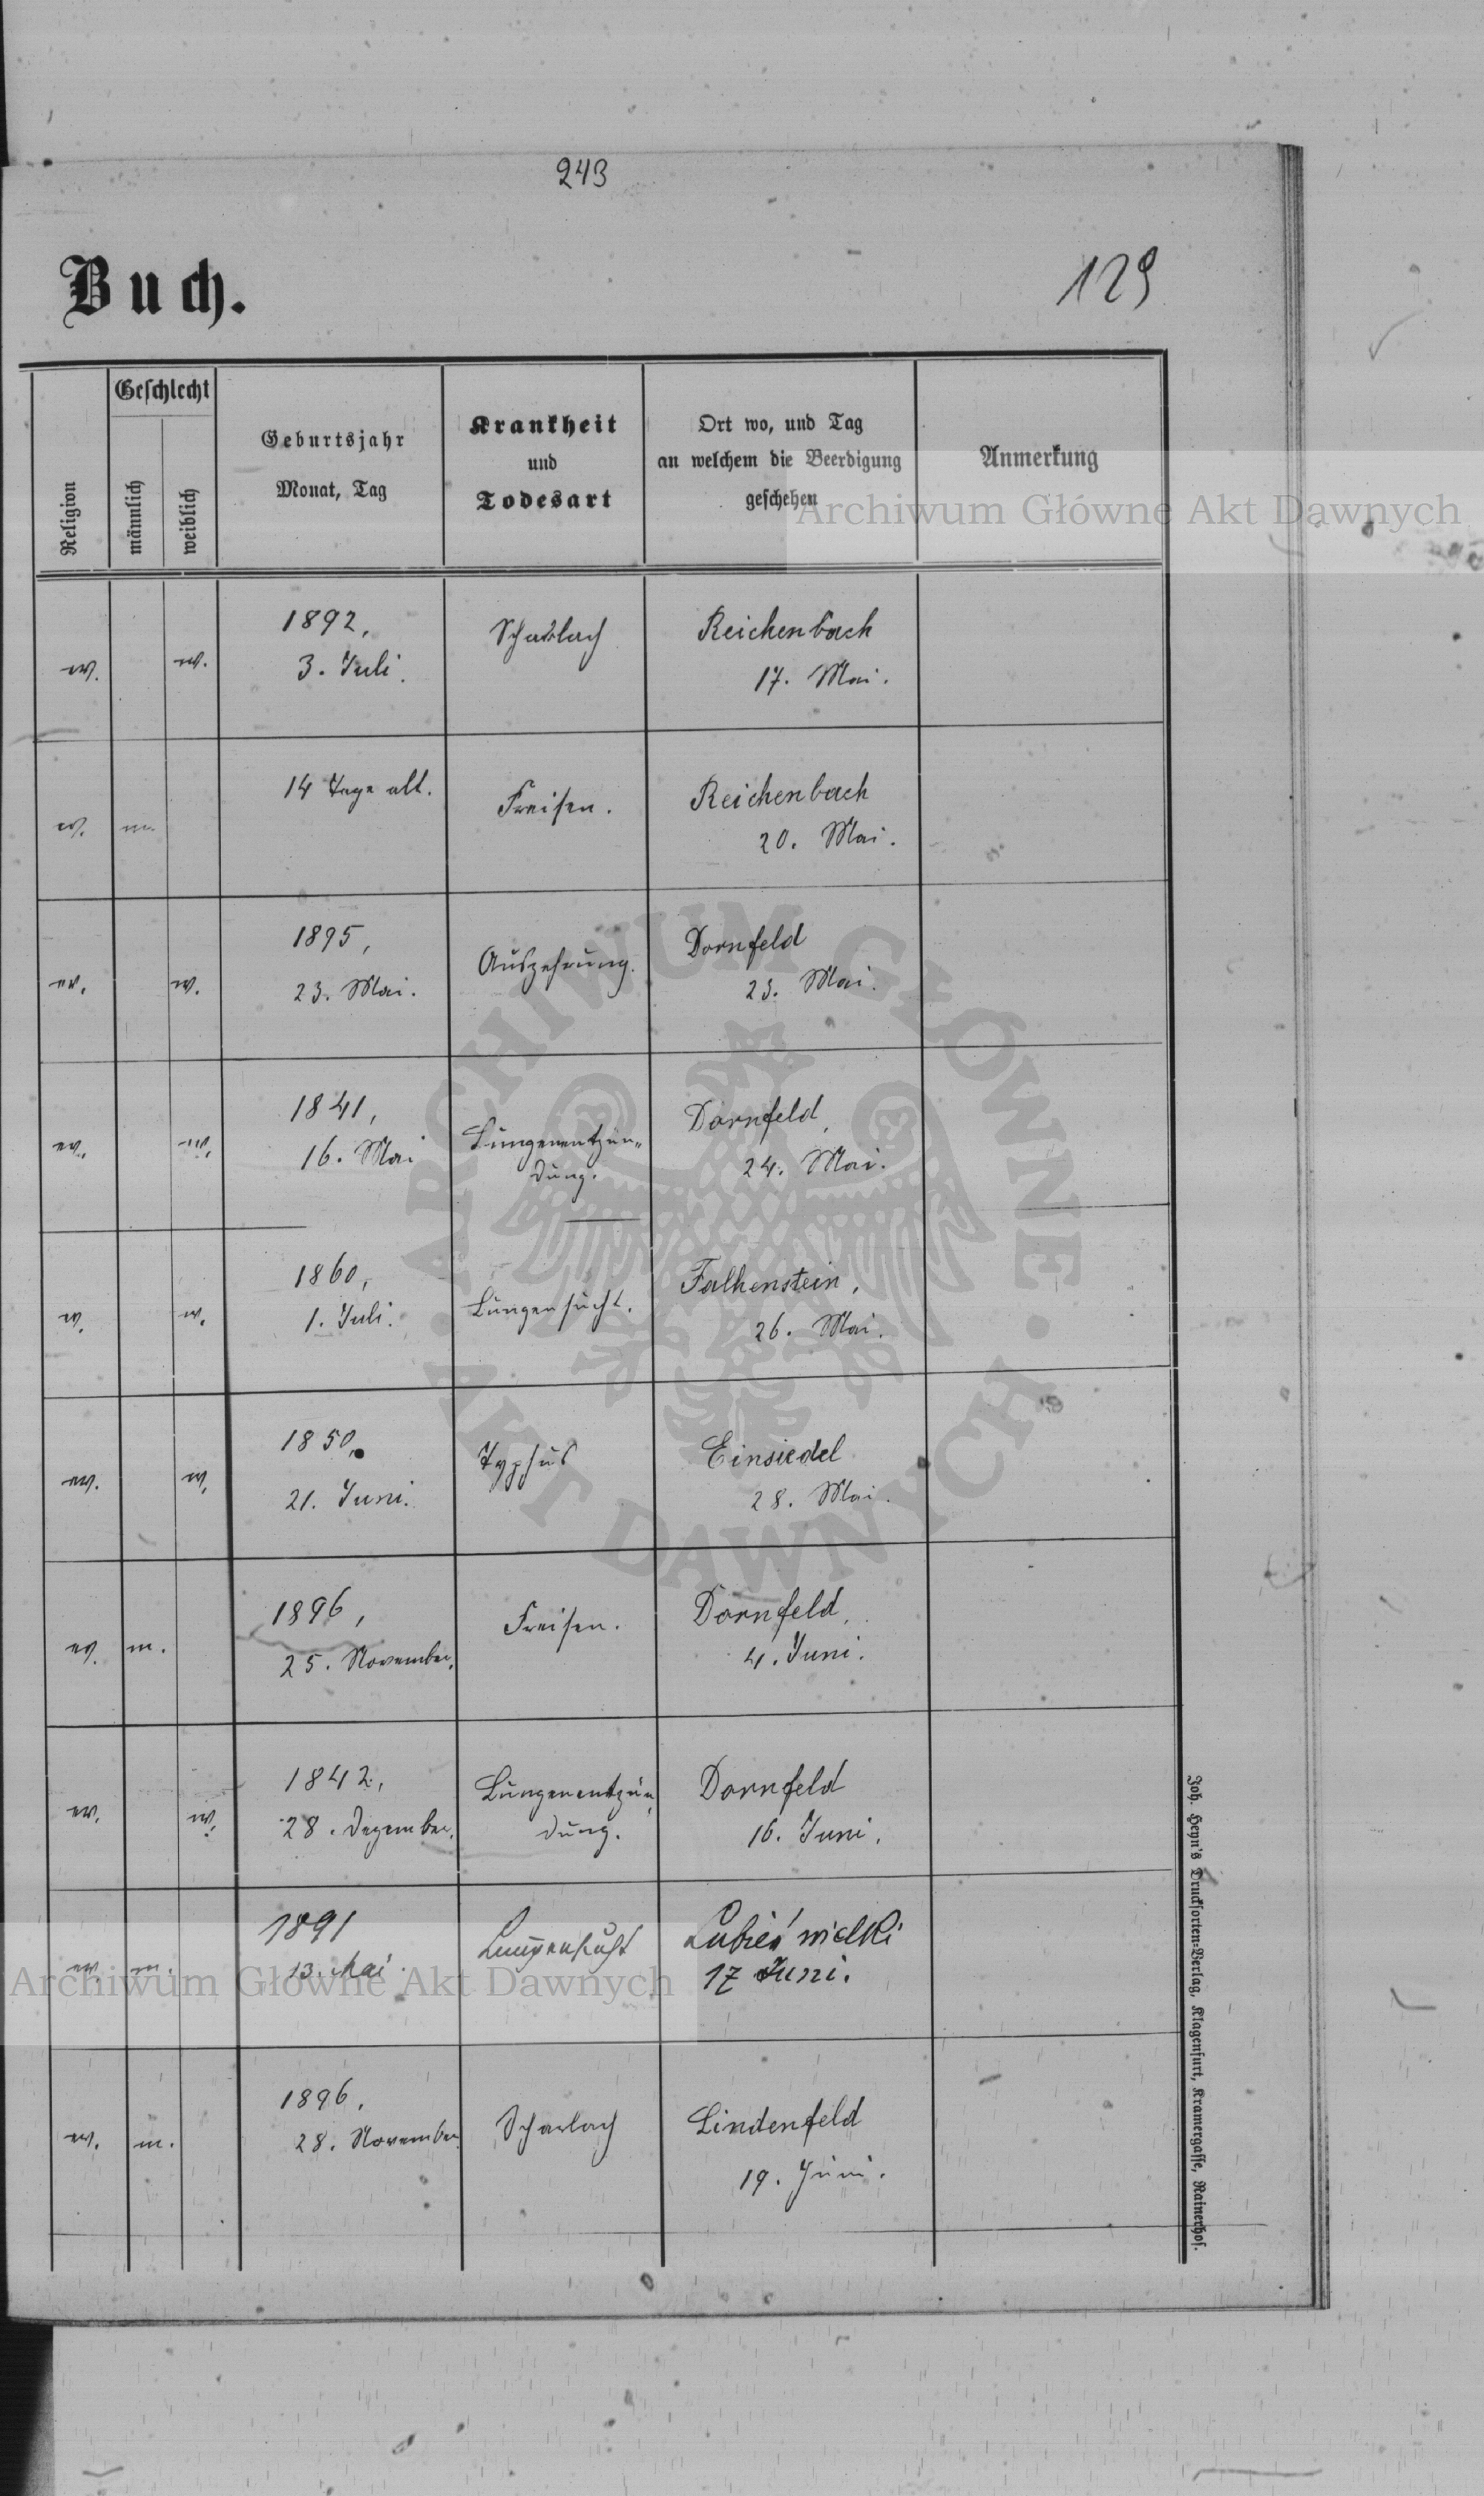 243
129
Buch.
Religion
Geschlecht
männlich
weiblich
Geburtsjahr
Monat, Tag
Krankheit
und
Todesart
Ort wo, und Tag
an welchem die Beerdigung
geschehen
Anmerkung
Archiwum Główne Akt Dawnych
ev. w. 1892, Scharlach Reichenbach
3. Juli. 17. Mai.
ev. m. 14 Tage alt. Freisen. Reichenbach
20. Mai.
ev. w. 1895, Auszehrung. Dornfeld
23. Mai. 23. Mai.
ev. w. 1841, Lungenentzün- Dornfeld,
16. Mai dung. 24. Mai.
ev. w. 1860, Lungensucht. Falkenstein,
1. Juli. 26. Mai.
ev. w. 1850, Typhus Einsiedel
21. Juni. 28. Mai.
ev. m. 1896, Freisen. Dornfeld,
25. November. 4. Juni.
ev. w. 1842, Lungenentzün- Dornfeld
28. Dezember. dung. 16. Juni.
ev. m. 1891 Lungensucht Lubień wielki
13. Mai 17 Juni.
ev. m. 1896, Scharlach Lindenfeld
28. November 19. Juni.
ARCHIWUM GŁÓWNE · AKT DAWNYCH ·
Archiwum Główne Akt Dawnych
Joh. Heyn's Drucksorten-Verlag, Klagenfurt, Kramergasse, Rainerhof.